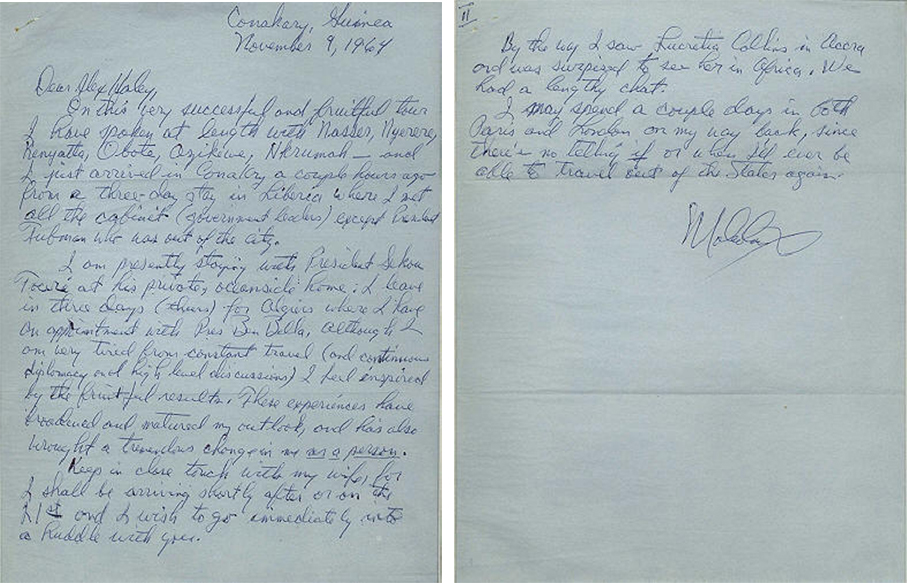 Conakary, Guinea
November 9, 1964
Dear Alex Haley,
On this very successful and fruitful tour
I have spoken at length with Nasser, Nyerere,
Kenyatta, Obote, Azikiwe, Nkrumah — and
I just arrived in Conakry a couple hours ago
from a three-day stay in Liberia where I met
all the cabinet (government leaders) except President
Tubman who was out of the city.
I am presently staying with President Sekou
Toure at his private, oceanside home. I leave
in three days (thurs) for Algiers where I have
an appointment with Pres Ben Bella, although I
am very tired from constant travel (and continuous
diplomacy and high level discussions) I feel inspired
by the fruitful results. These experiences have
broadened and matured my outlook, and has also
wrought a tremendous change in me as a person.
Keep in close touch with my wife, for
I shall be arriving shortly after or on the
21st and I wish to go immediately into
a huddle with you.
II
By the way I saw Lucretia Collins in Accra
and was surprized to see her in Africa. We
had a lengthy chat.
I may spend a couple days in both
Paris and London on my way back, since
there's no telling if or when I'll ever be
able to travel out of the States again.
Malcolm X